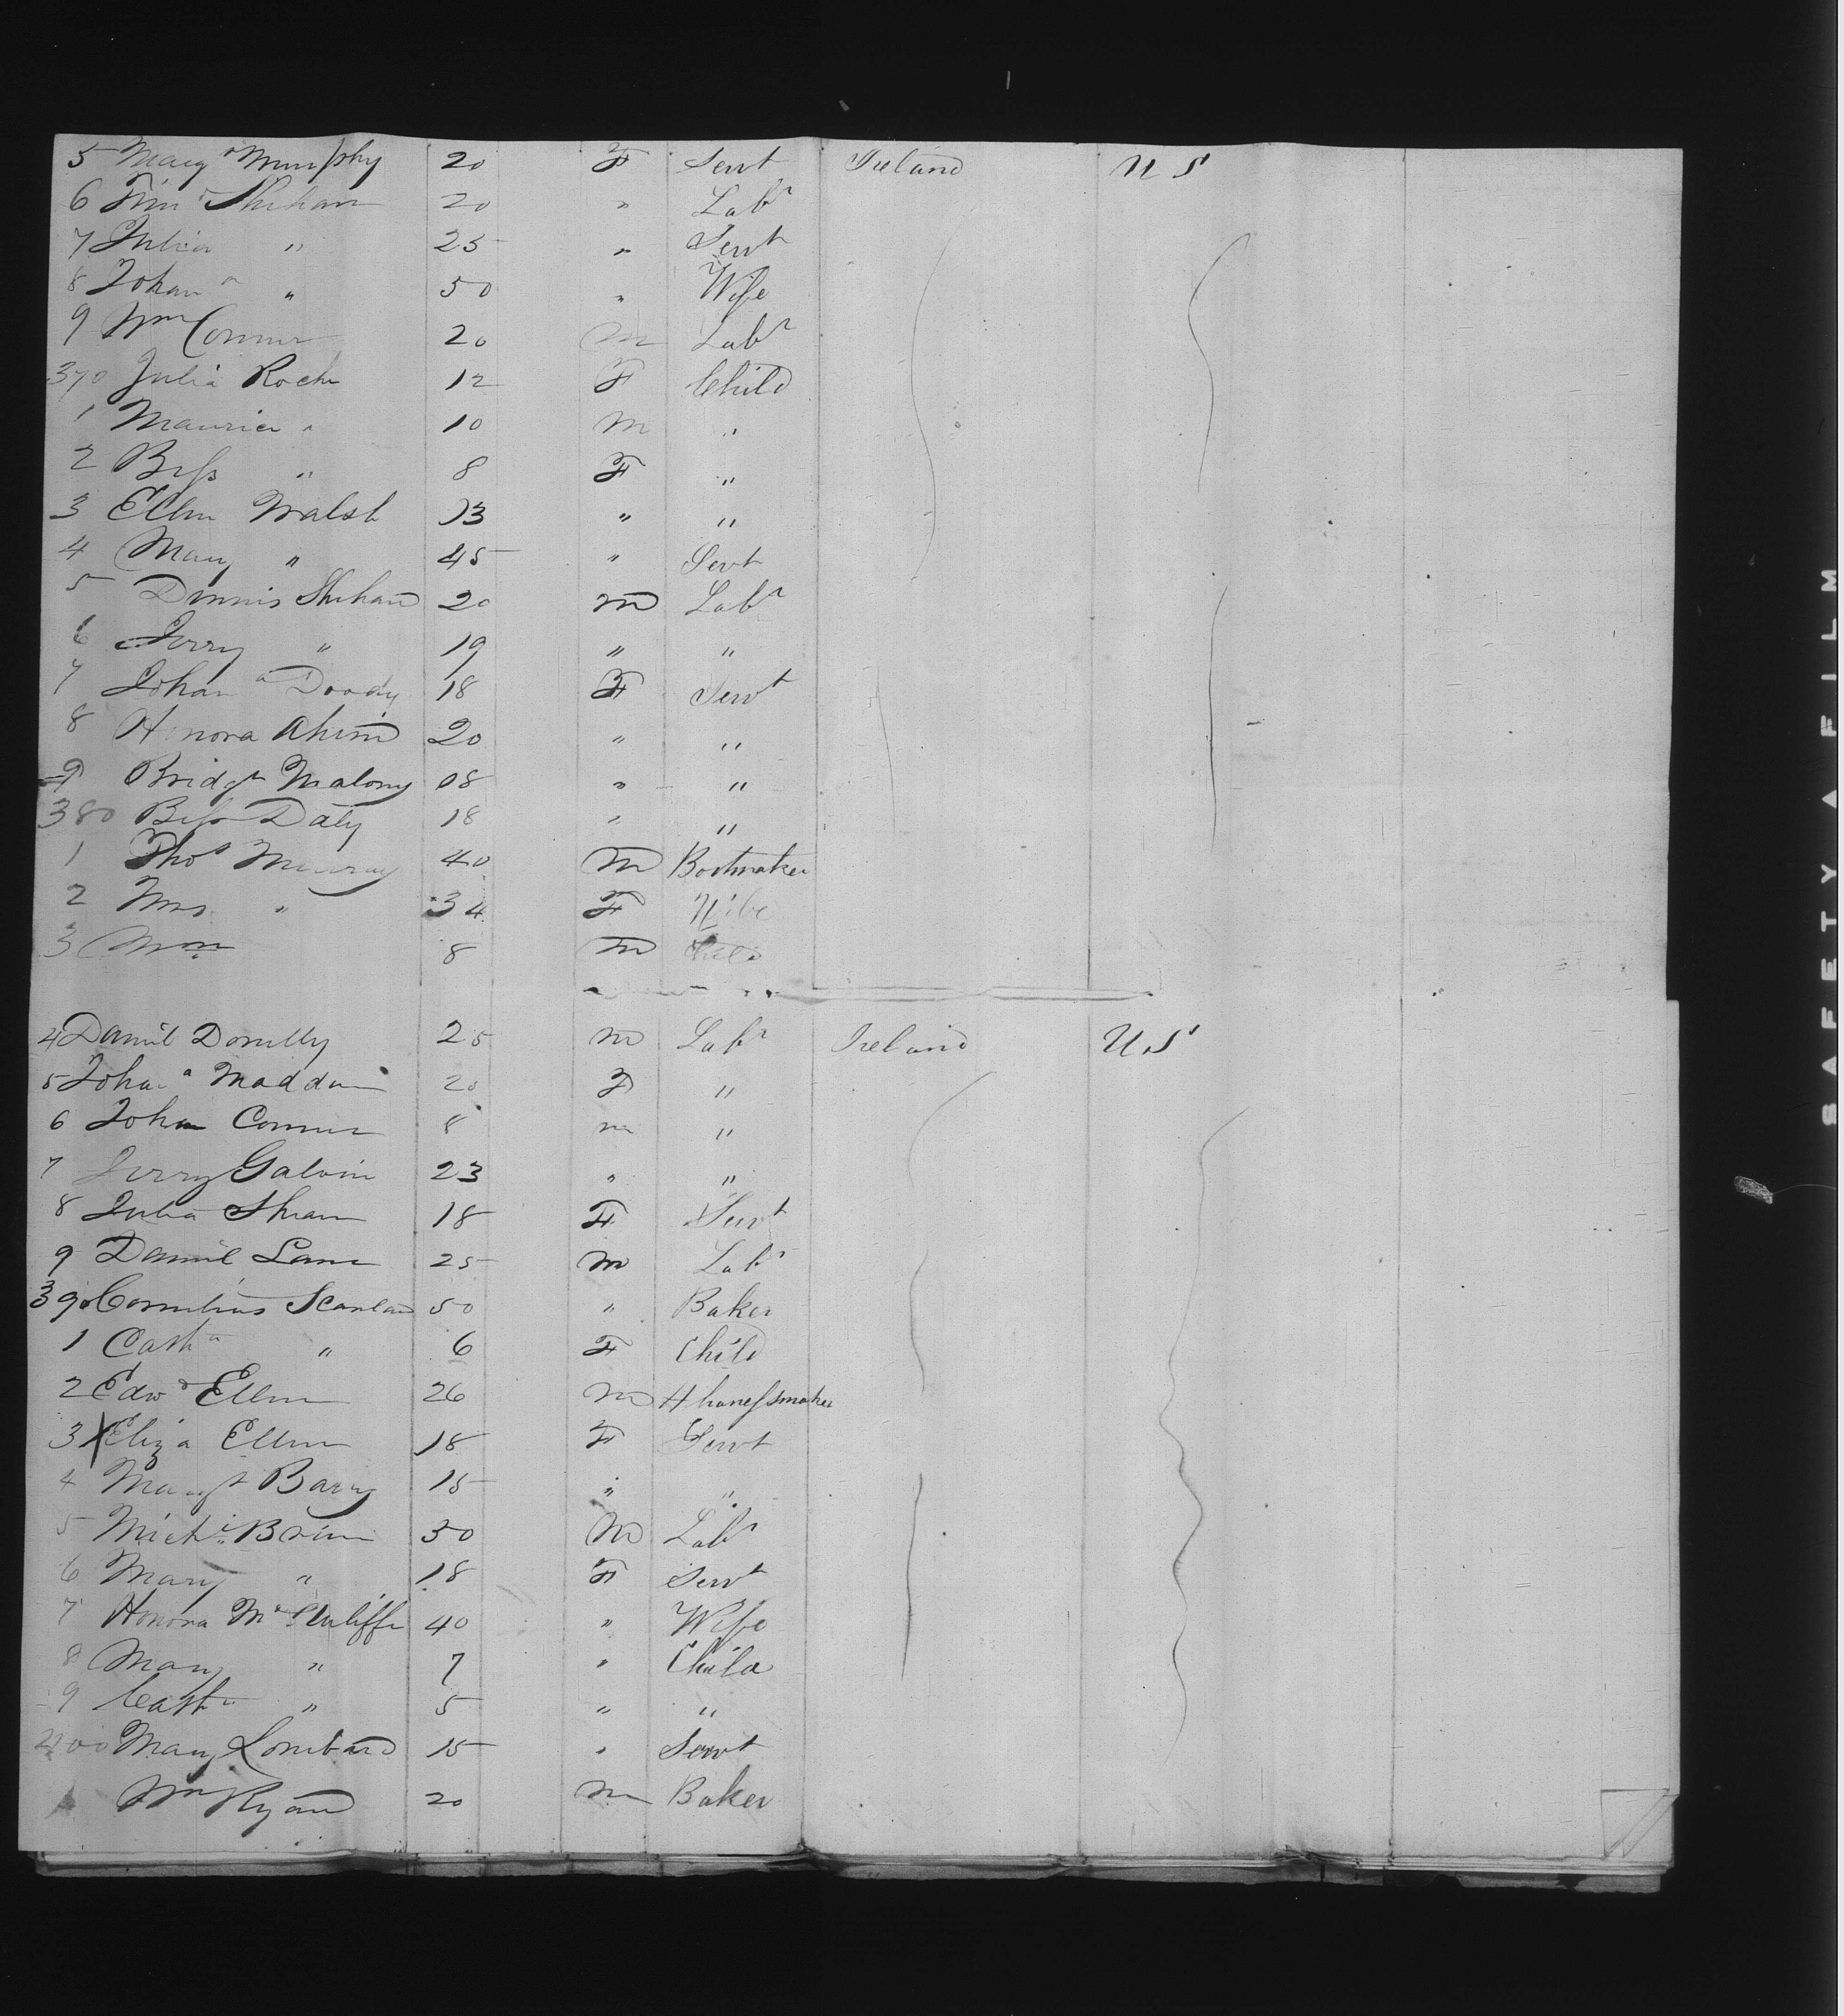 5 Mary Murphy 20 F Servt Ireland U S
6 Tim Shehan 20 " Labr
7 Julia " 25 " Servt
8 Johana " 50 " Wife
9 Wm Connor 20 m Labr
370 Julia Roche 12 F Child
1 Maurice " 10 m "
2 Bess " 8 F "
3 Ellen Walsh 13 " "
4 Mary " 45 " Servt
5 Dennis Shehan 20 m Labr
6 Jerry " 19 " "
7 Johana Doody 18 F Servt
8 Honora Ahern 20 " "
9 Bridgt Malony 18 " "
380 Bess Daly 18 " "
1 Thos Murray 40 m Bootmaker
2 Mrs " 34 F Wife
3 Wm 8 m Child
4 Daniel Donelly 25 m Labr Ireland U.S
5 Johana Madden 20 F "
6 John Connor 8 m "
7 Jerry Galvin 23 " "
8 Julia Shean 18 F Servt
9 Daniel Lane 25 m Labr
390 Cornelius Scanlan 50 " Baker
1 Cathn " 6 F Child
2 Edwd Ellen 26 m Harnessmaker
3 X Eliza Ellen 18 F Servt
4 Margt Barry 15 " "
5 Michl Brien 30 M Labr
6 Mary " 18 F Servt
7 Honora McAuliffe 40 " Wife
8 Mary " 7 " Child
9 Cathn " 5 " "
400 Mary Lombard 15 " Servt
Wm Ryan 20 m Baker
SAFETY FILM